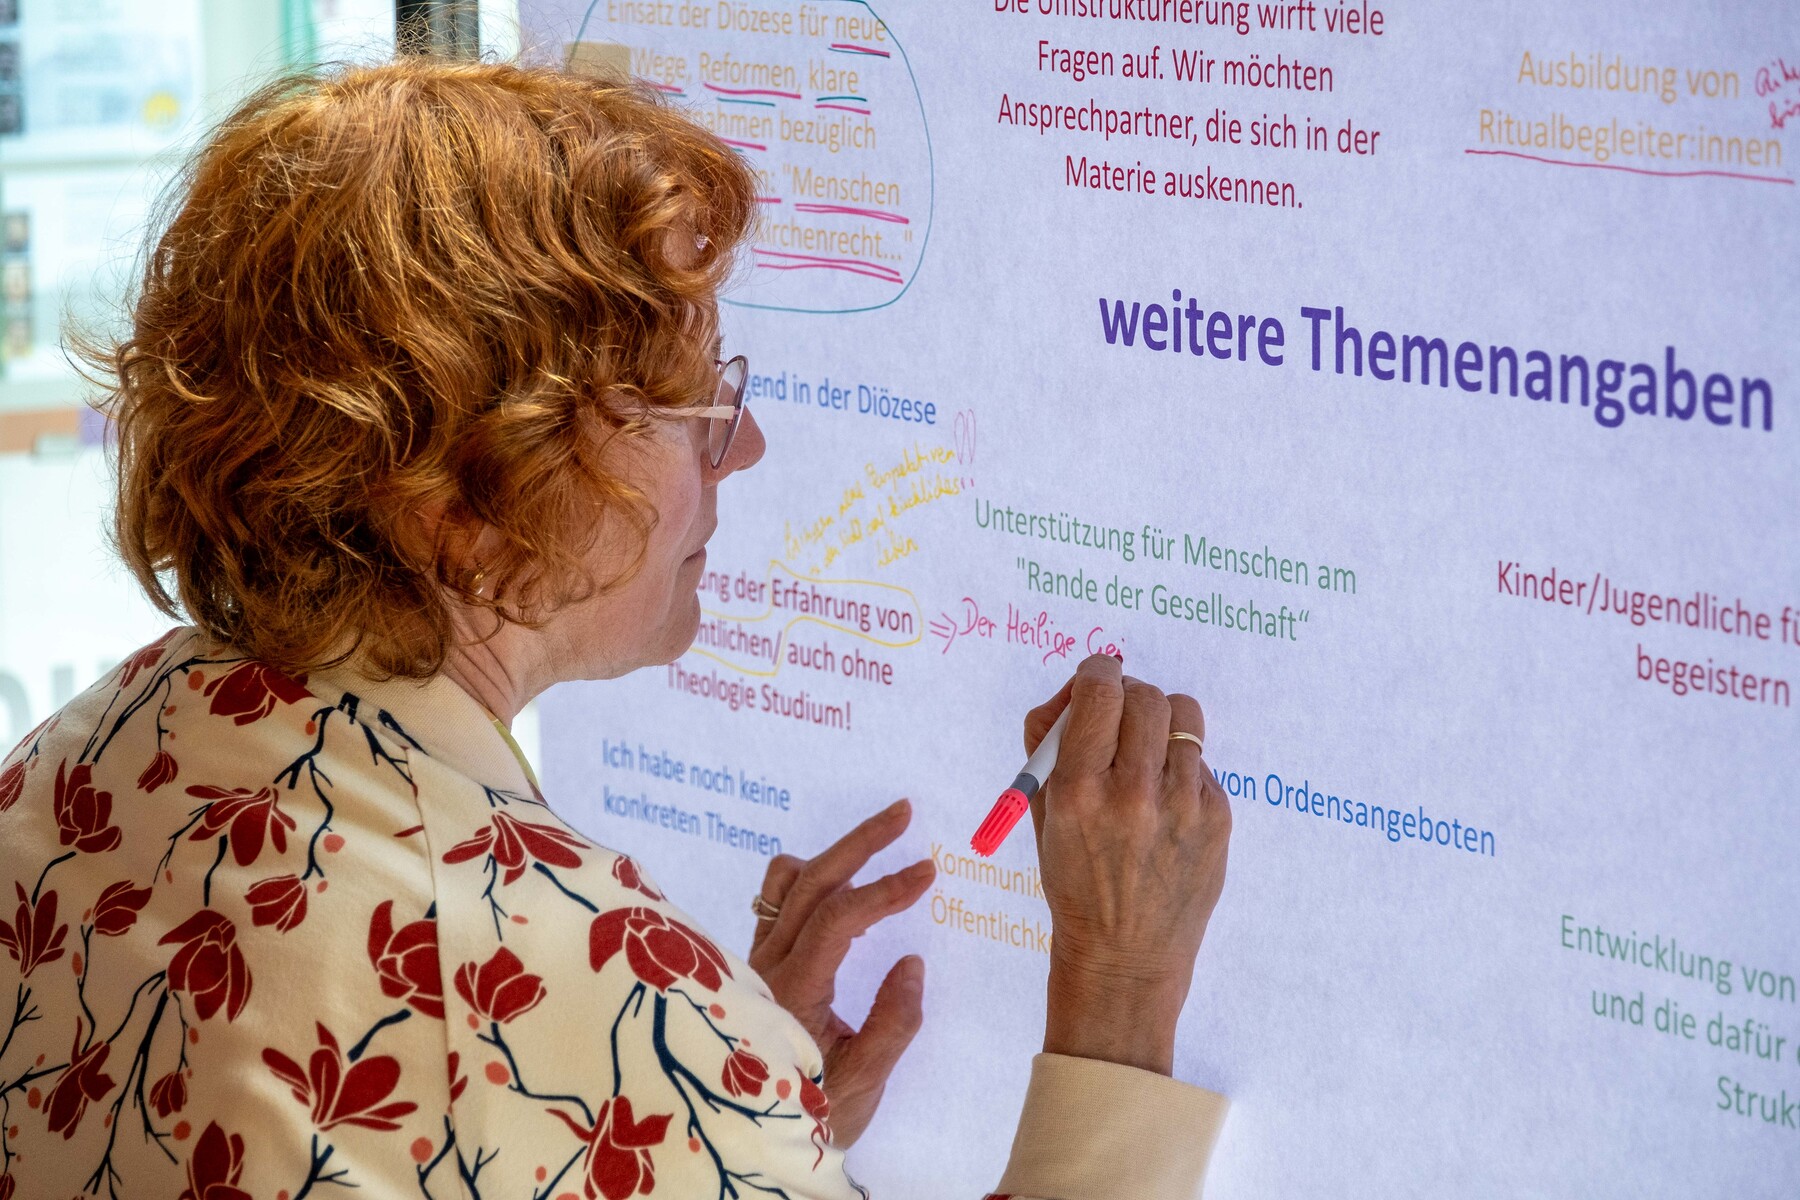 Einsatz der Diözese für neue
Wege, Reformen, klare
nahmen bezüglich
n: "Menschen
irchenrecht..."
Die Umstrukturierung wirft viele
Fragen auf. Wir möchten
Ansprechpartner, die sich in der
Materie auskennen.
Ausbildung von
Ritualbegleiter:innen
weitere Themenangaben
gend in der Diözese
bringen neue Perspektiven !!
kirchliches
leben
Unterstützung für Menschen am
"Rande der Gesellschaft“
ung der Erfahrung von
ntlichen/ auch ohne
Theologie Studium!
⇒ Der Heilige Gei
Kinder/Jugendliche fü
begeistern
Ich habe noch keine
konkreten Themen
von Ordensangeboten
Kommunik
Öffentlichk
Entwicklung von
und die dafür
Strukt